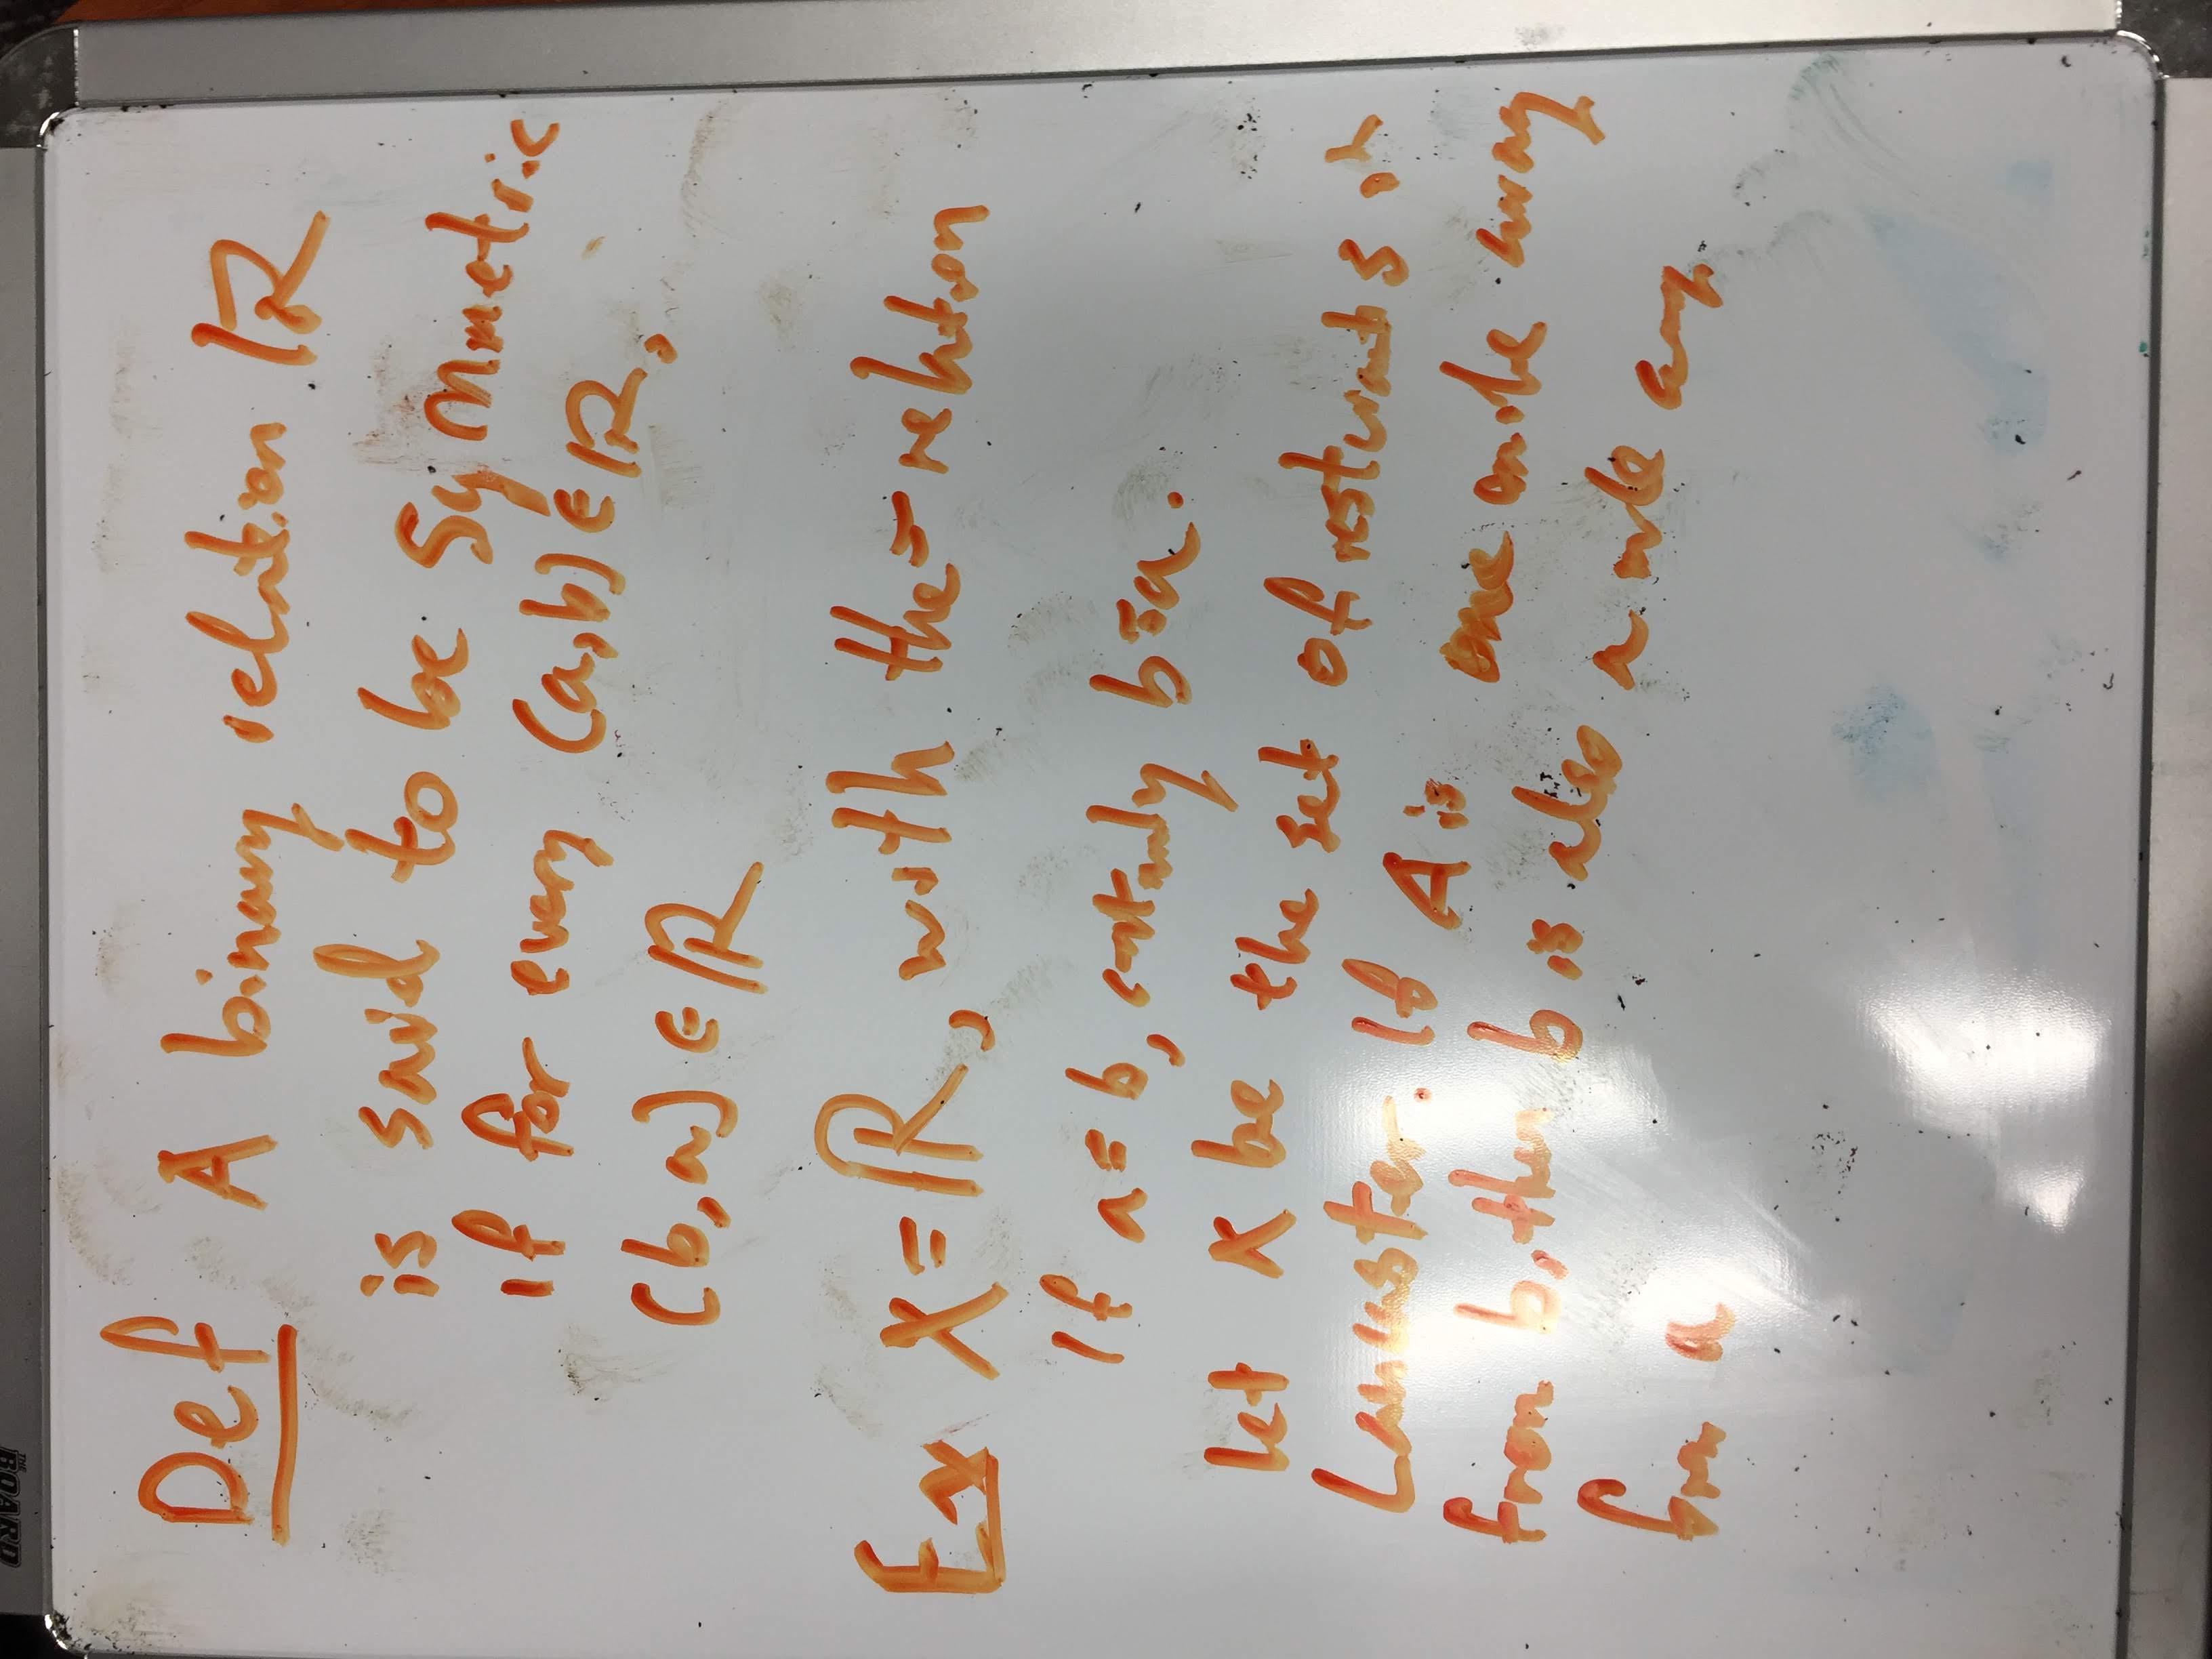 THE BOARD
Def A binary relation ℝ
is said to be symmetric
if for every (a,b) ∈ ℝ,
(b,a) ∈ ℝ
Ex X = ℝ, with the = relation
If a = b, certainly b = a.
Let X be the set of resturants in
Lancaster. If A is one mile away
from b, then b is also a mile away
from a